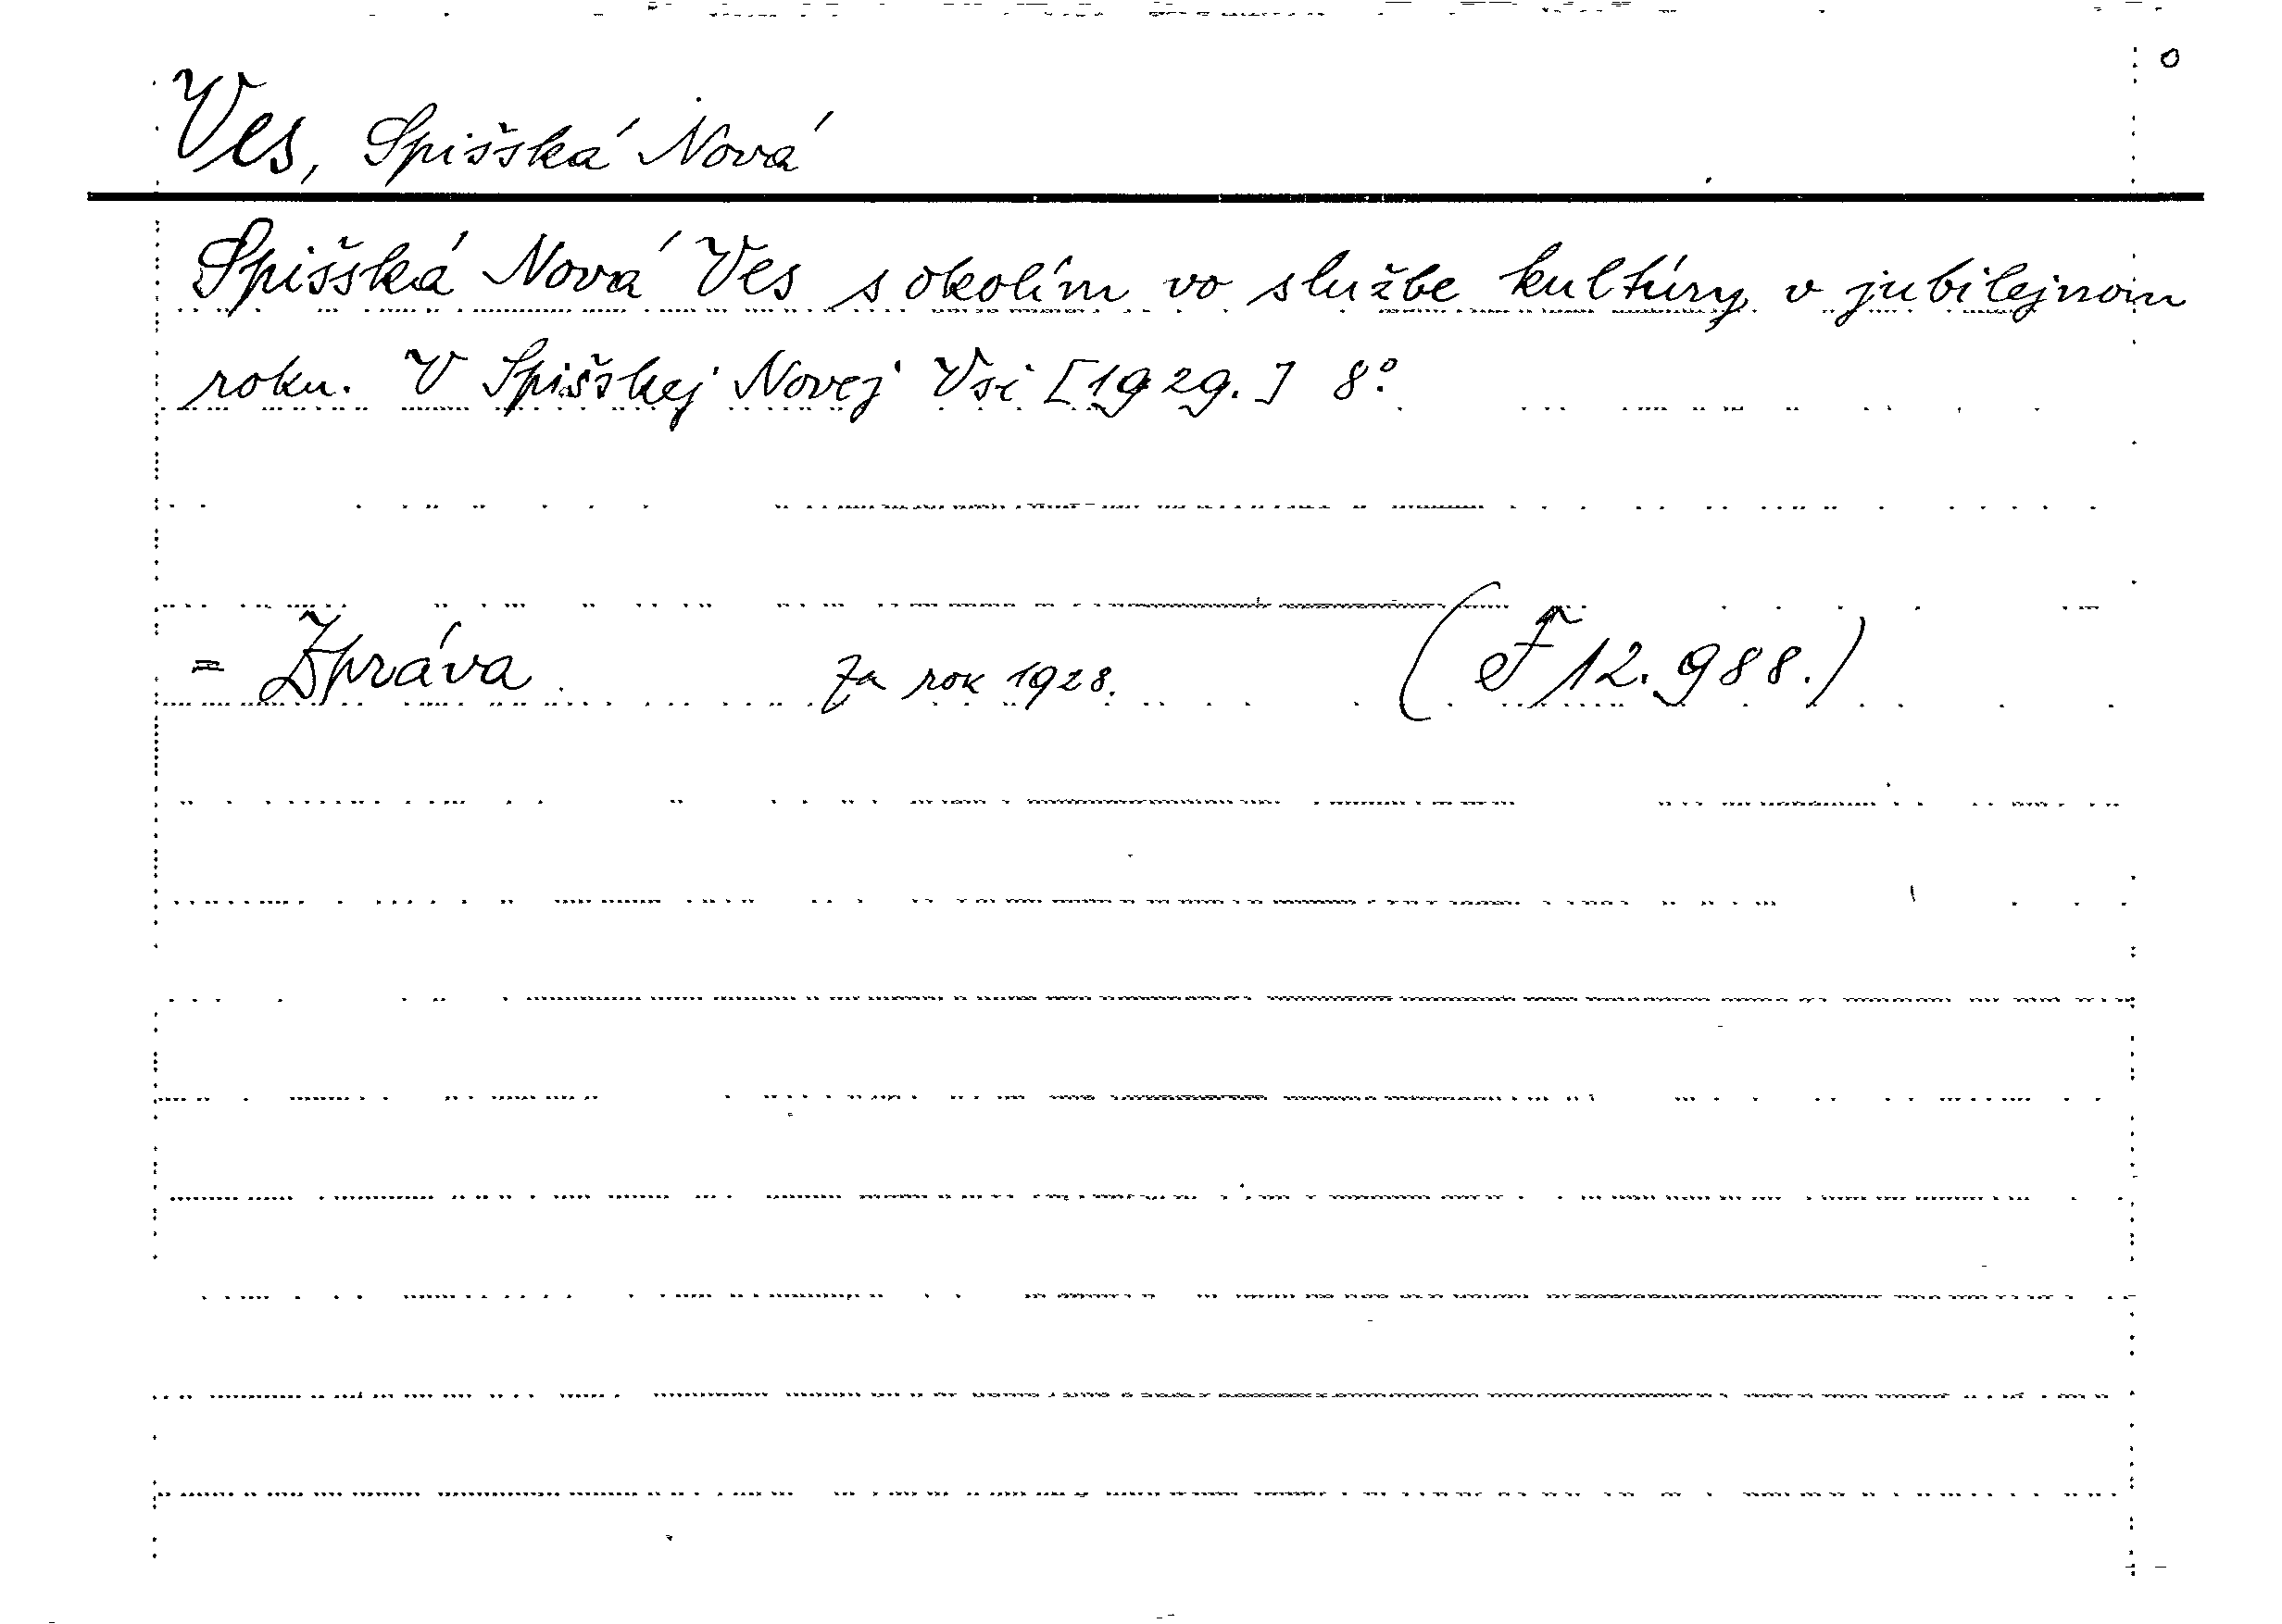 Ves, Spišská Nová
Spišská Nová Ves s okolím vo službe kultúry v jubilejnom
roku. V Spišskej Novej Vsi [1929.] 8°.
= Zpráva za rok 1928. (F 12.988.)